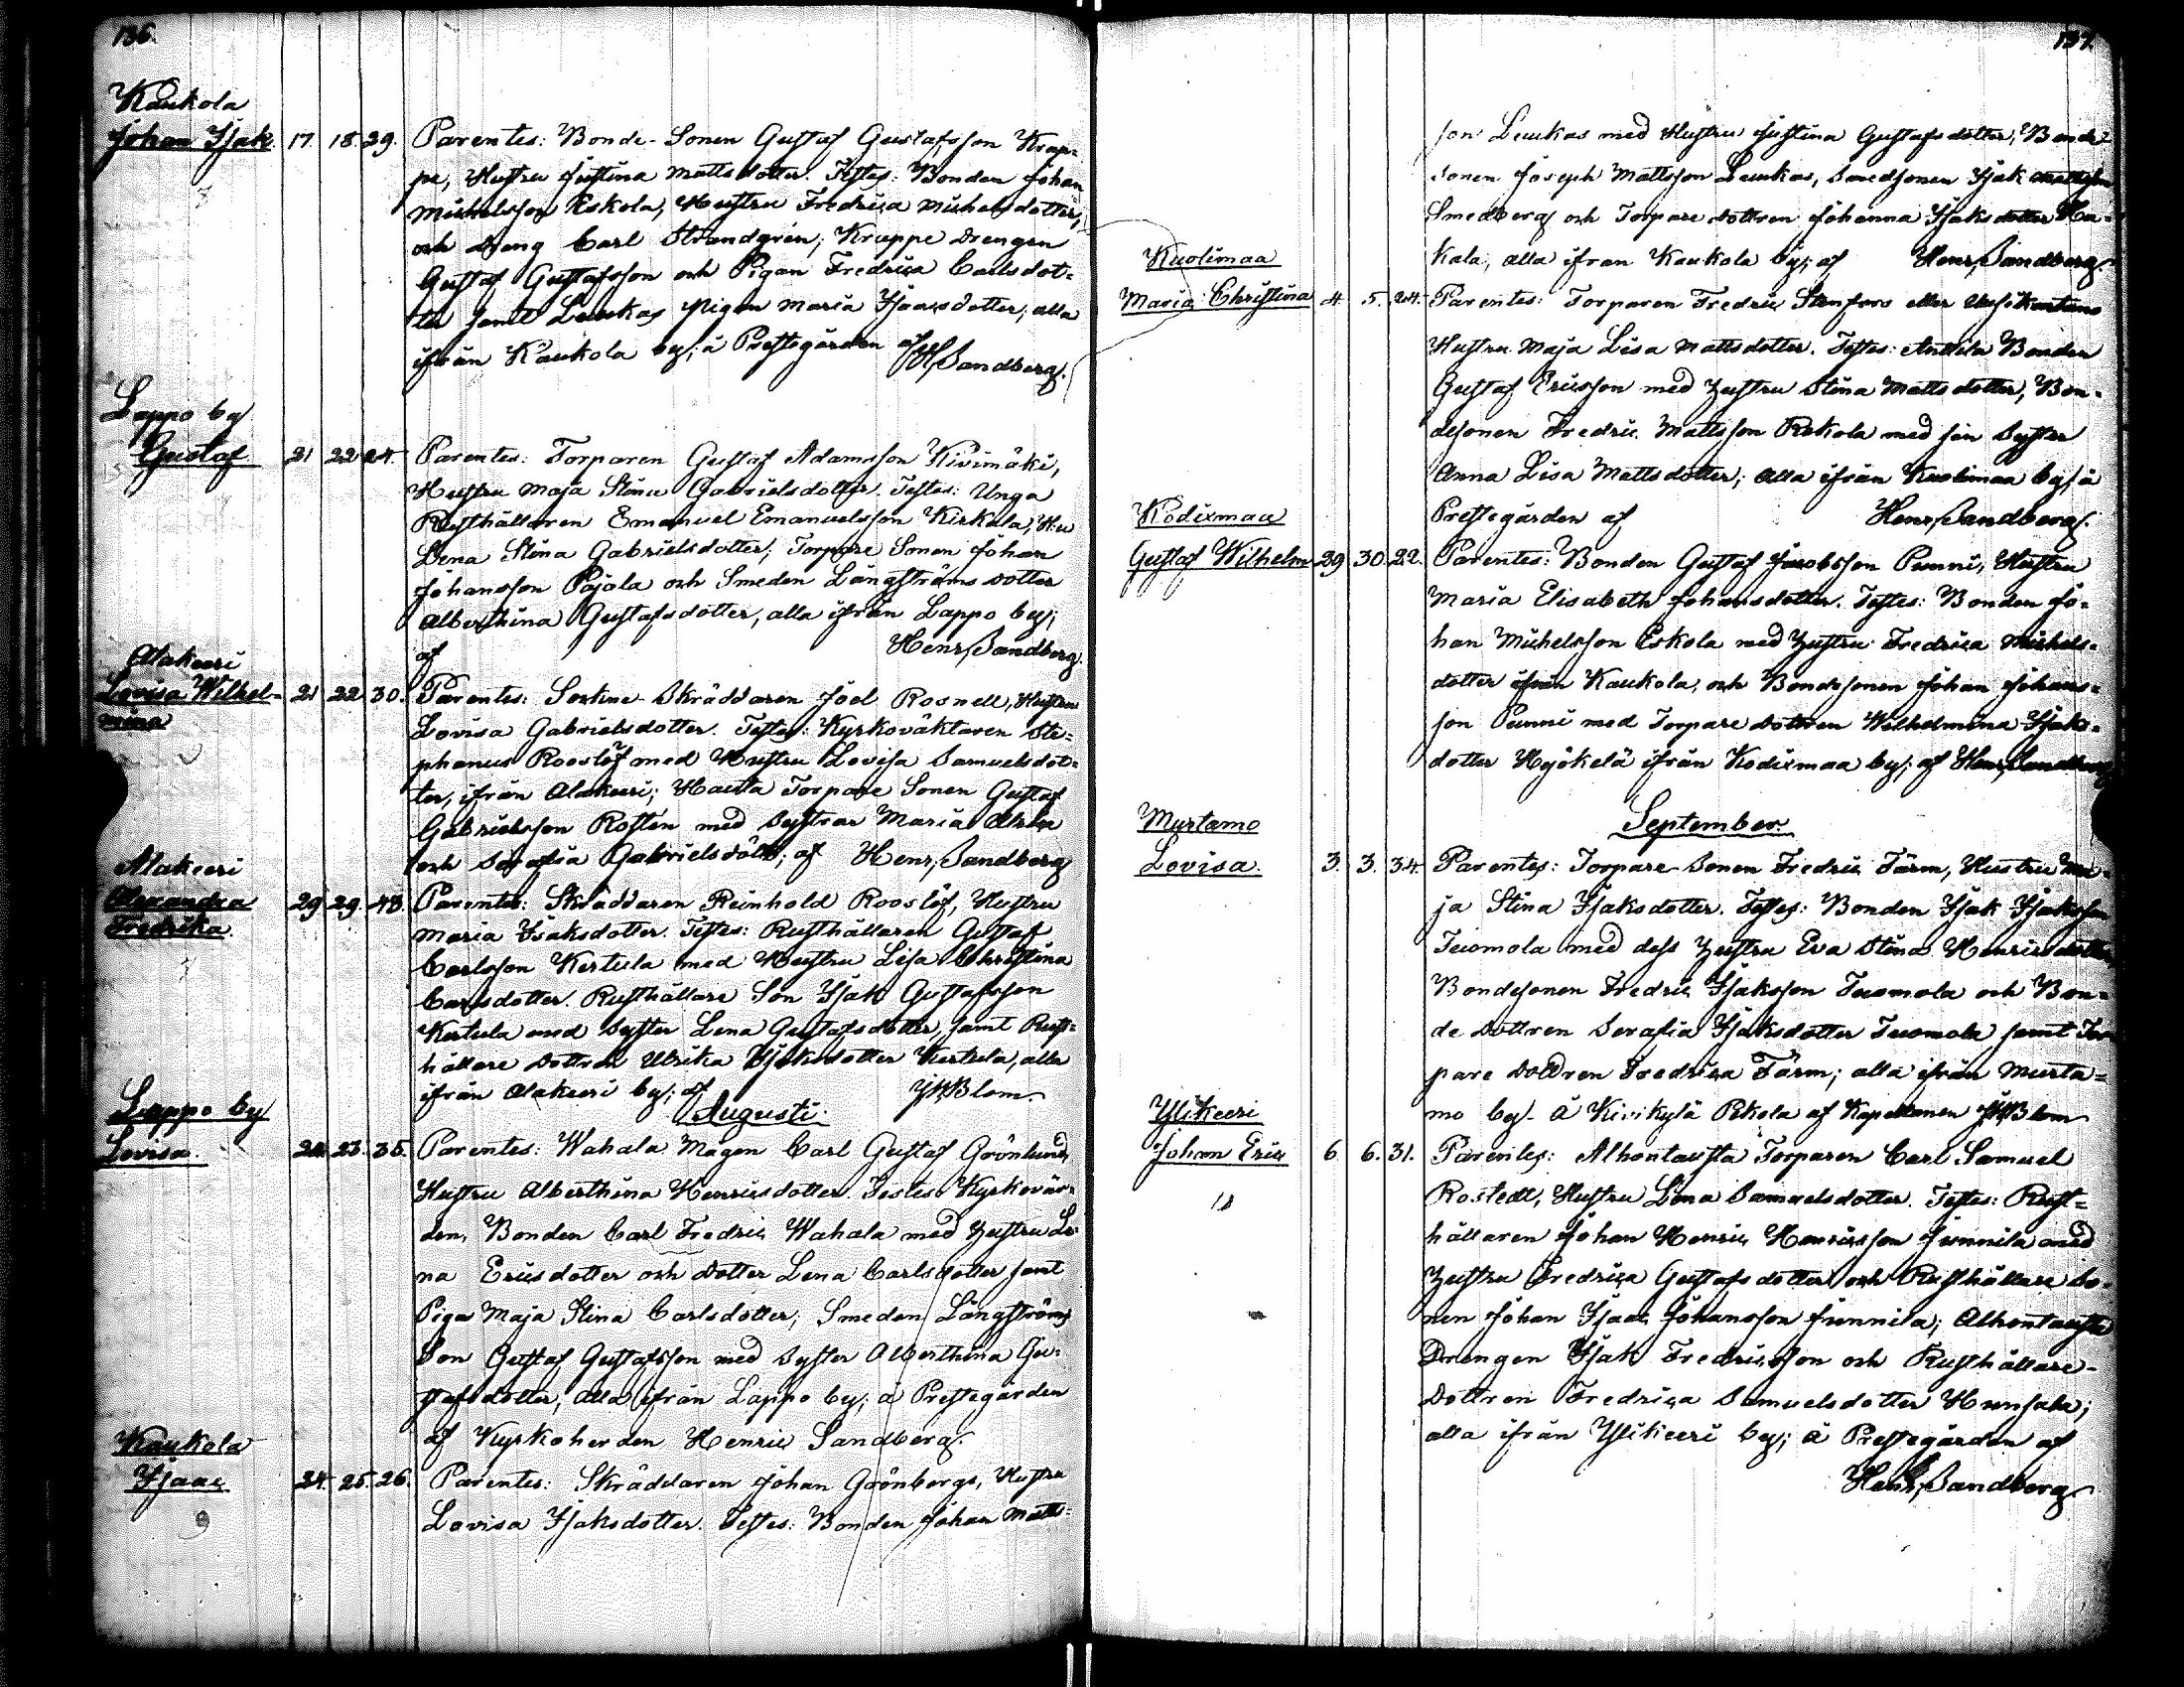 136.
Kaukola
Johan Isak 17. 18. 29. Parentes: Bonde-Sonen Gustaf Gustafsson Krap-
pe, Hustru Justina Mattsdotter. Testes: Bonden Johan
Michelsson Eskola, Hustru Fredrica Michelsdotter,
och Dreng Carl Strandgrèn; Krappe Drengen
Gustaf Gustafsson och Pigan Fredrica Carlsdot-
ter samt Leukas Pigan Maria Isaacsdotter; alla
ifrån Kaukola by; å Prestegården af
H Sandberg.
Lappo by
Gustaf 21 22 24. Parentes: Torparen Gustaf Adamsson Kivimäki,
Hustru Maja Stina Gabrielsdotter. Testes: Unga
Rusthållaren Emanuel Emanuelsson Kirkala, H:u
Lena Stina Gabrielsdotter; Torpare Sonen Johan
Johansson Pajala och Smeden Långströms dotter
Alberthina Gustafsdotter, alla ifrån Lappo by;
af Henr. Sandberg.
Alakeeri
Lovisa Wilhel-
mina 21 22 30. Parentes: Sockne-Skräddaren Joel Rosnell, Hustru
Lovisa Gabrielsdotter. Testes: Kyrkoväktaren Ste-
phanus Rooslöf med Hustru Lovisa Samuelsdot-
ter, ifrån Alakeeri; Torpare Sonen Gustaf
Gabrielsson Rostèn med Systrar Maria
och Serafia Gabrielsdött; af Henr. Sandberg
Alakeeri
Alexandra
Fredrika 29 29. 43. Parentes: Skräddaren Reinhold Rooslöf, Hustru
Maria Isaksdotter. Testes: Rusthållaren Gustaf
Carlsson Kertula med Hustru Lisa Christina
Carlsdotter. Rusthållare Son Isak Gustafsson
Kertula med Syster Lena Gustafsdotter, samt Rust-
hållare Dottren Ulrika Isaksdotter Kertula, alla
ifrån Alakeeri by; af J W Blom.
Augusti.
Lappo by
Lovisa. 23. 35. Parentes: Wahala Mågen Carl Gustaf Grönlund,
Hustru Alberthina Henricsdotter. Testes: Kyrkovär-
den, Bonden Carl Fredric Wahala med Hustru Le-
na Ericsdotter och Dotter Lena Carlsdotter samt
Piga Maja Stina Carlsdotter; Smeden Långströms
Son Gustaf Gustafsson med Syster Alberthina Gu-
stafsdotter, alla ifrån Lappo by; å Prestegården
af Kyrkoherden Henric Sandberg.
Kaukola
Isaac 24. 25. 26. Parentes: Skräddaren Johan Grönberg, Hustru
Lovisa Isaksdotter. Testes: Bonden Johan Matts-
9
137
son Leukas med Hustru Justina Gustafsdotter, Bonde-
sonen Joseph Mattsson Leukas, Smedsonen Isak Mattsson
Smedberg och Torpare Dottren Johanna Isaksdotter
kala, alla ifrån Kaukola by; af Henr. Sandberg.
Kuolimaa
Maria Christina 4. 5. 24. Parentes: Torparen Fredric Stenfors eller
Hustru Maja Lisa Mattsdotter. Testes: Anttila Bonden
Gustaf Ericsson med Hustru Stina Mattsdotter, Bon-
desonen Fredric Mattsson Rekola med sin Syster
Anna Lisa Mattsdotter; alla ifrån Kuolimaa by; å
Prestegården af Henr. Sandberg.
Kodixmaa
Gustaf Wilhelm 29 30. 22. Parentes: Bonden Gustaf Jacobsson Punni, Hustru
Maria Elisabeth Johansdotter. Testes: Bonden Jo-
han Michelsson Eskola med Hustru Fredrica Michels-
dotter ifrån Kaukola, och Bondesonen Johan Johans-
son Punni med Torpare Dottren Wilhelmina Isaks-
dotter Hyökelä ifrån Kodixmaa by; af Henr. Sandberg
September.
Murtamo
Lovisa. 3. 3. 34. Parentes: Torpare-Sonen Fredric Färm, Hustru Ma-
ja Stina Isaksdotter. Testes: Bonden Isak Isaksson
Tuomola med dess Hustru Eva Stina Henricsdotter,
Bondesonen Fredric Isaksson Tuomola och Bon-
de Dottren Serafia Isaksdotter Tuomola samt Tor-
pare Dottren Fredrica Färm; alla ifrån Murta-
mo by. å Kivikylä Pekola af Kapellanen J W Blom
Ylikeeri
Johan Eric 6 6. 31. Parentes: Alhontausta Torparen Carl Samuel
Rostedt, Hustru Lena Samuelsdotter. Testes: Rust-
hållaren Johan Henric Henricsson Junnila med
Hustru Fredrica Gustafsdotter och Rusthållare So-
nen Johan Isaac Johansson Junnila; Alhontausta
Drengen Isak Fredricsson och Rusthållare-
Dottren Fredrica Samuelsdotter Hunsala;
alla ifrån Ylikeeri by; å Prestegården af
Henr. Sandberg